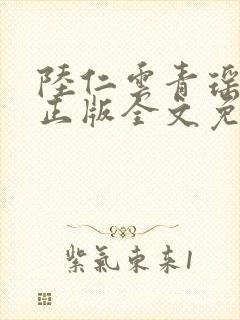 陸仁雲青瑶
正版全文免
紫氣東來1